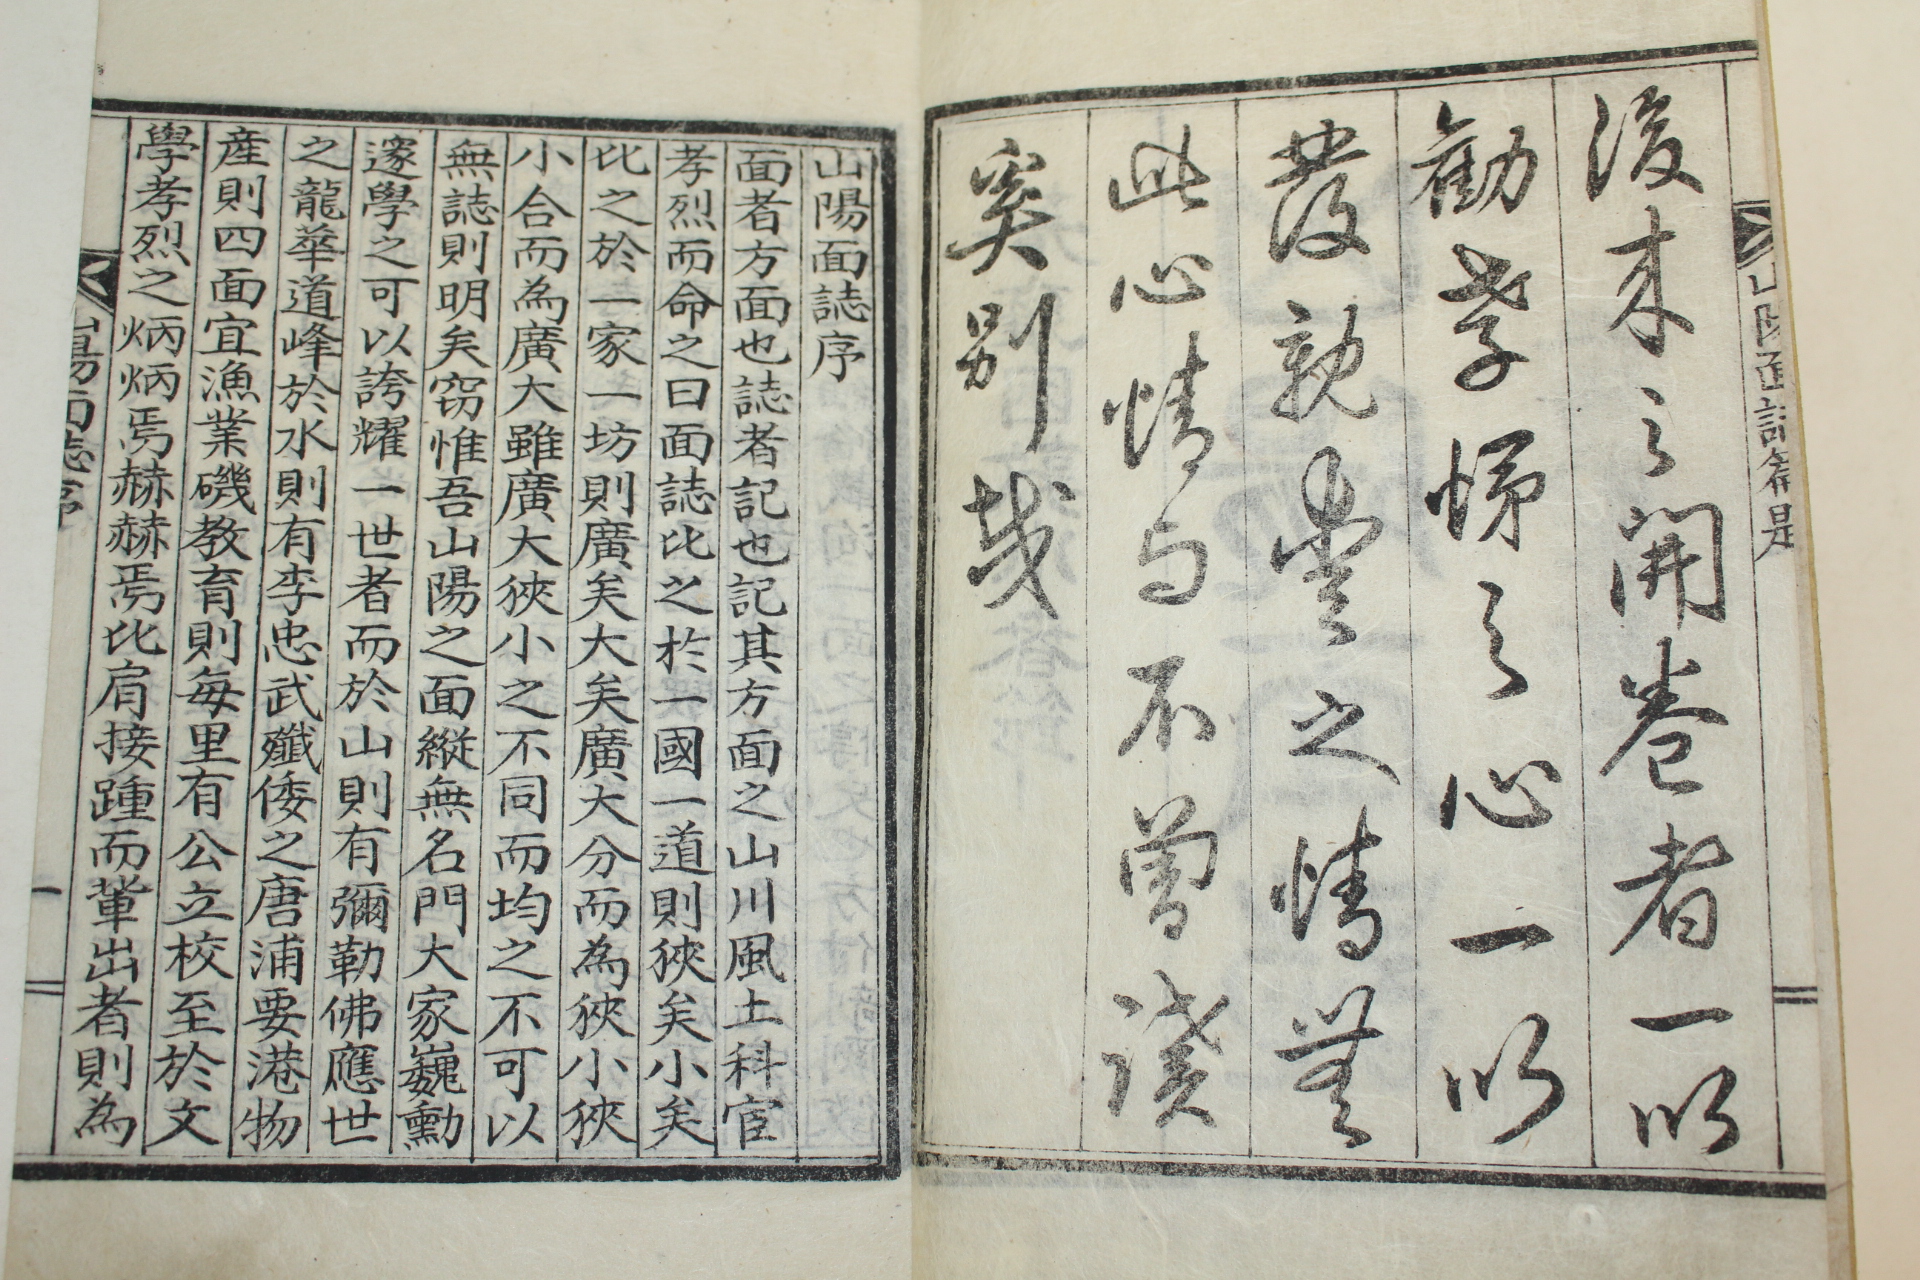 山陽面誌篇是
後来之開卷者一以
勸孝悌之心一以
發親愛之情無
此心情与不曾讀
奚別哉
山陽面誌序
面者方面也誌者記也記其方面之山川風土科宦
孝烈而命之曰面誌比之於一國一道則狹矣小矣
比之於一家一坊則廣矣大矣廣大分而為狹小狹
小合而為廣大雖廣大狹小之不同而均之不可以
無誌則明矣窃惟吾山陽之面縱無名門大家巍勳
邃學之可以誇耀一世者而於山則有彌勒佛應世
之龍華道峰於水則有李忠武殲倭之唐浦要港物
産則四面宜漁業磯教育則每里有公立校至於文
學孝烈之炳炳焉赫赫焉比肩接踵而輩出者則為
山陽面誌序
一